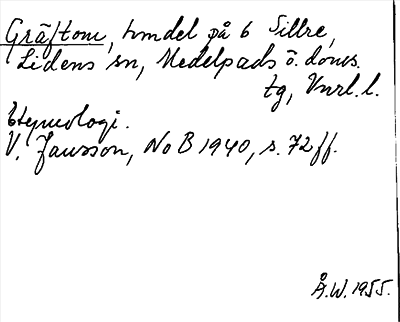 Gräftom, tomdel på 6 Sillre,
Lidens sn, Medelpads ö. doms.
tg, Vnrl. l.
Etymologi.
V. Jansson, NoB 1940, s. 72 ff.
Å.W. 1955.